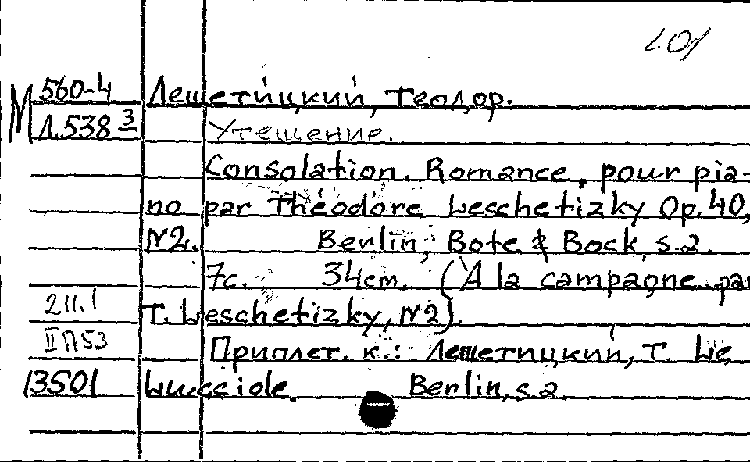 101
М 560-4 Лешетицкий, Теодор.
Л.538 3 Утешение.
Consolation. Romance, pour pia-
no par Théodore Leschetizky Op. 40,
N2. Berlin, Bote & Bock, s.a.
7с. 34cm. (A la campagne par
211.1 T. Leschetizky, N2).
II П53 Приплет. к.: Лешетицкий, Т. Le
13501 Lucciole. Berlin, s.a.